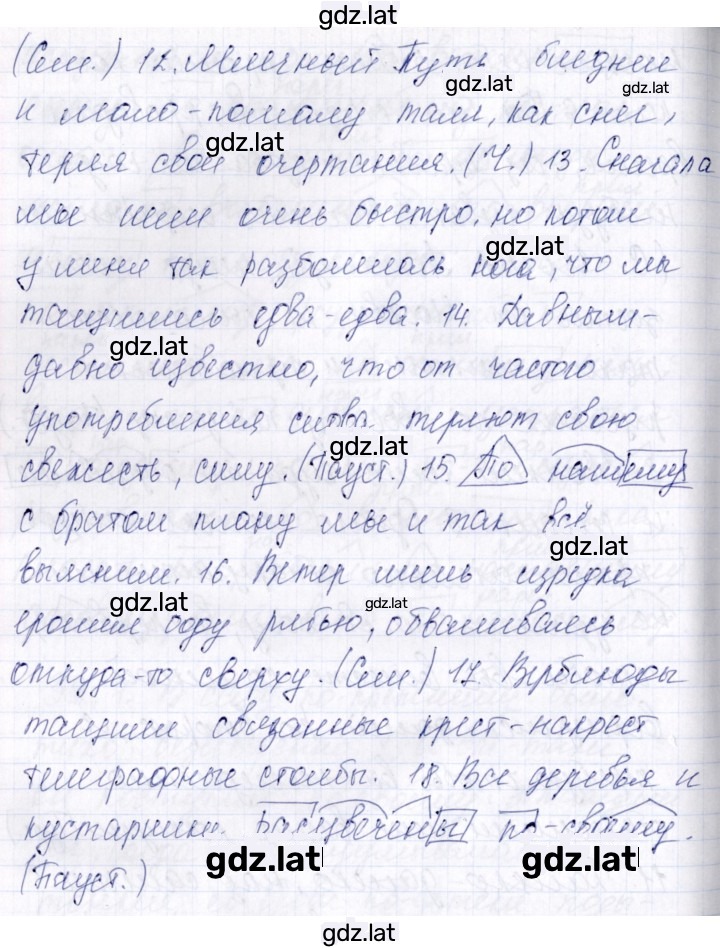 gdz.lat
(Сем.) 12. Млечный Путь бледнел
gdz.lat
и мало-помалу таял, как снег,
gdz.lat
gdz.lat
теряя свои очертания. (Ч.) 13. Сначала
мы шли очень быстро, но потом
gdz.lat
у меня так разболелась нога, что мы
тащились едва-едва. 14. Давным-
gdz.lat
давно известно, что от частого
употребления слова теряют свою
gdz.lat
свежесть, силу. (Пауст.) 15. По нашему
с братом плану мы и так всё
gdz.lat
выясним. 16. Ветер лишь изредка
gdz.lat
gdz.lat
ерошил воду рябью, обваливаясь
откуда-то сверху. (Сем.) 17. Верблюды
тащили связанные крест-накрест
телеграфные столбы. 18. Все деревья и
кустарники расцвечены по-своему.
gdz.lat
gdz.lat
(Пауст.)
gdz.lat